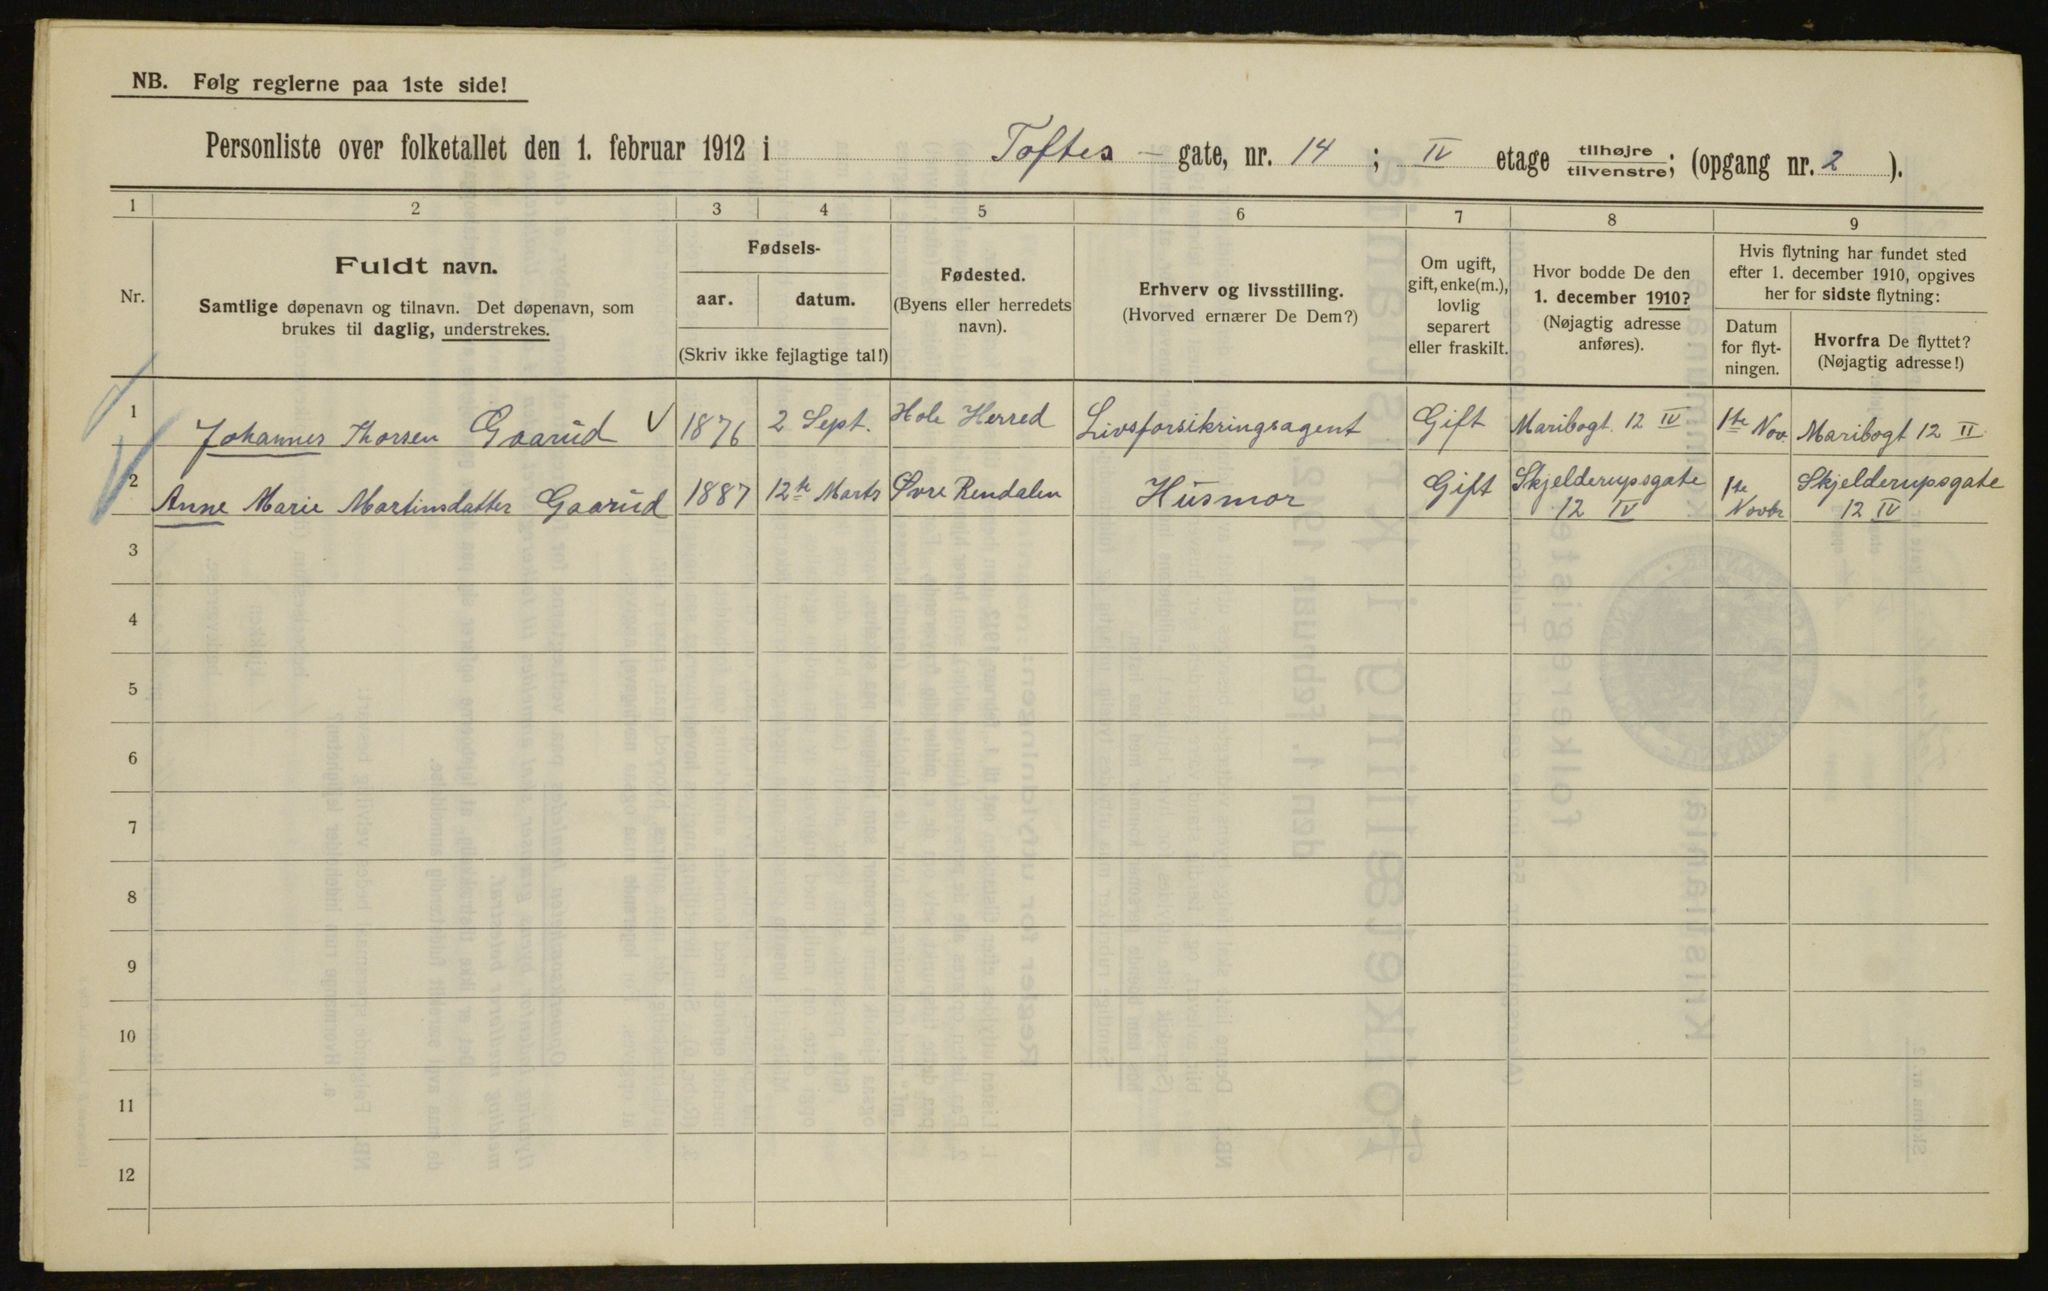 NB. Følg reglerne paa 1ste side!
Personliste over folketallet den 1. februar 1912 i Toftes - gate, nr. 14 ; IV etage tilhøjre/tilvenstre; (opgang nr. 2 ).
1 2 3 4 5 6 7 8 9
Nr.
Fuldt navn.
Samtlige døpenavn og tilnavn. Det døpenavn, som
brukes til daglig, understrekes.
Fødsels-
aar. datum.
(Skriv ikke fejlagtige tal!)
Fødested.
(Byens eller herredets
navn).
Erhverv og livsstilling.
(Hvorved ernærer De Dem?)
Om ugift,
gift, enke(m.),
lovlig
separert
eller fraskilt.
Hvor bodde De den
1. december 1910?
(Nøjagtig adresse
anføres).
Hvis flytning har fundet sted
efter 1. december 1910, opgives
her for sidste flytning:
Datum
for flyt-
ningen.
Hvorfra De flyttet?
(Nøjagtig adresse!)
1 Johannes Thorsen Gaarud V 1876 2 Sept. Hole Herred Livsforsikringsagent Gift Maribogt. 12 IV 1ste Nov. Maribogt 12 II
2 Anne Marie Martinsdatter Gaarud 1887 12te Marts Øvre Rendalen Husmor Gift Skjelderupsgate 12 IV 1te Novbr Skjelderupsgate 12 IV
3
4
5
6
7
8
9
10
11
12